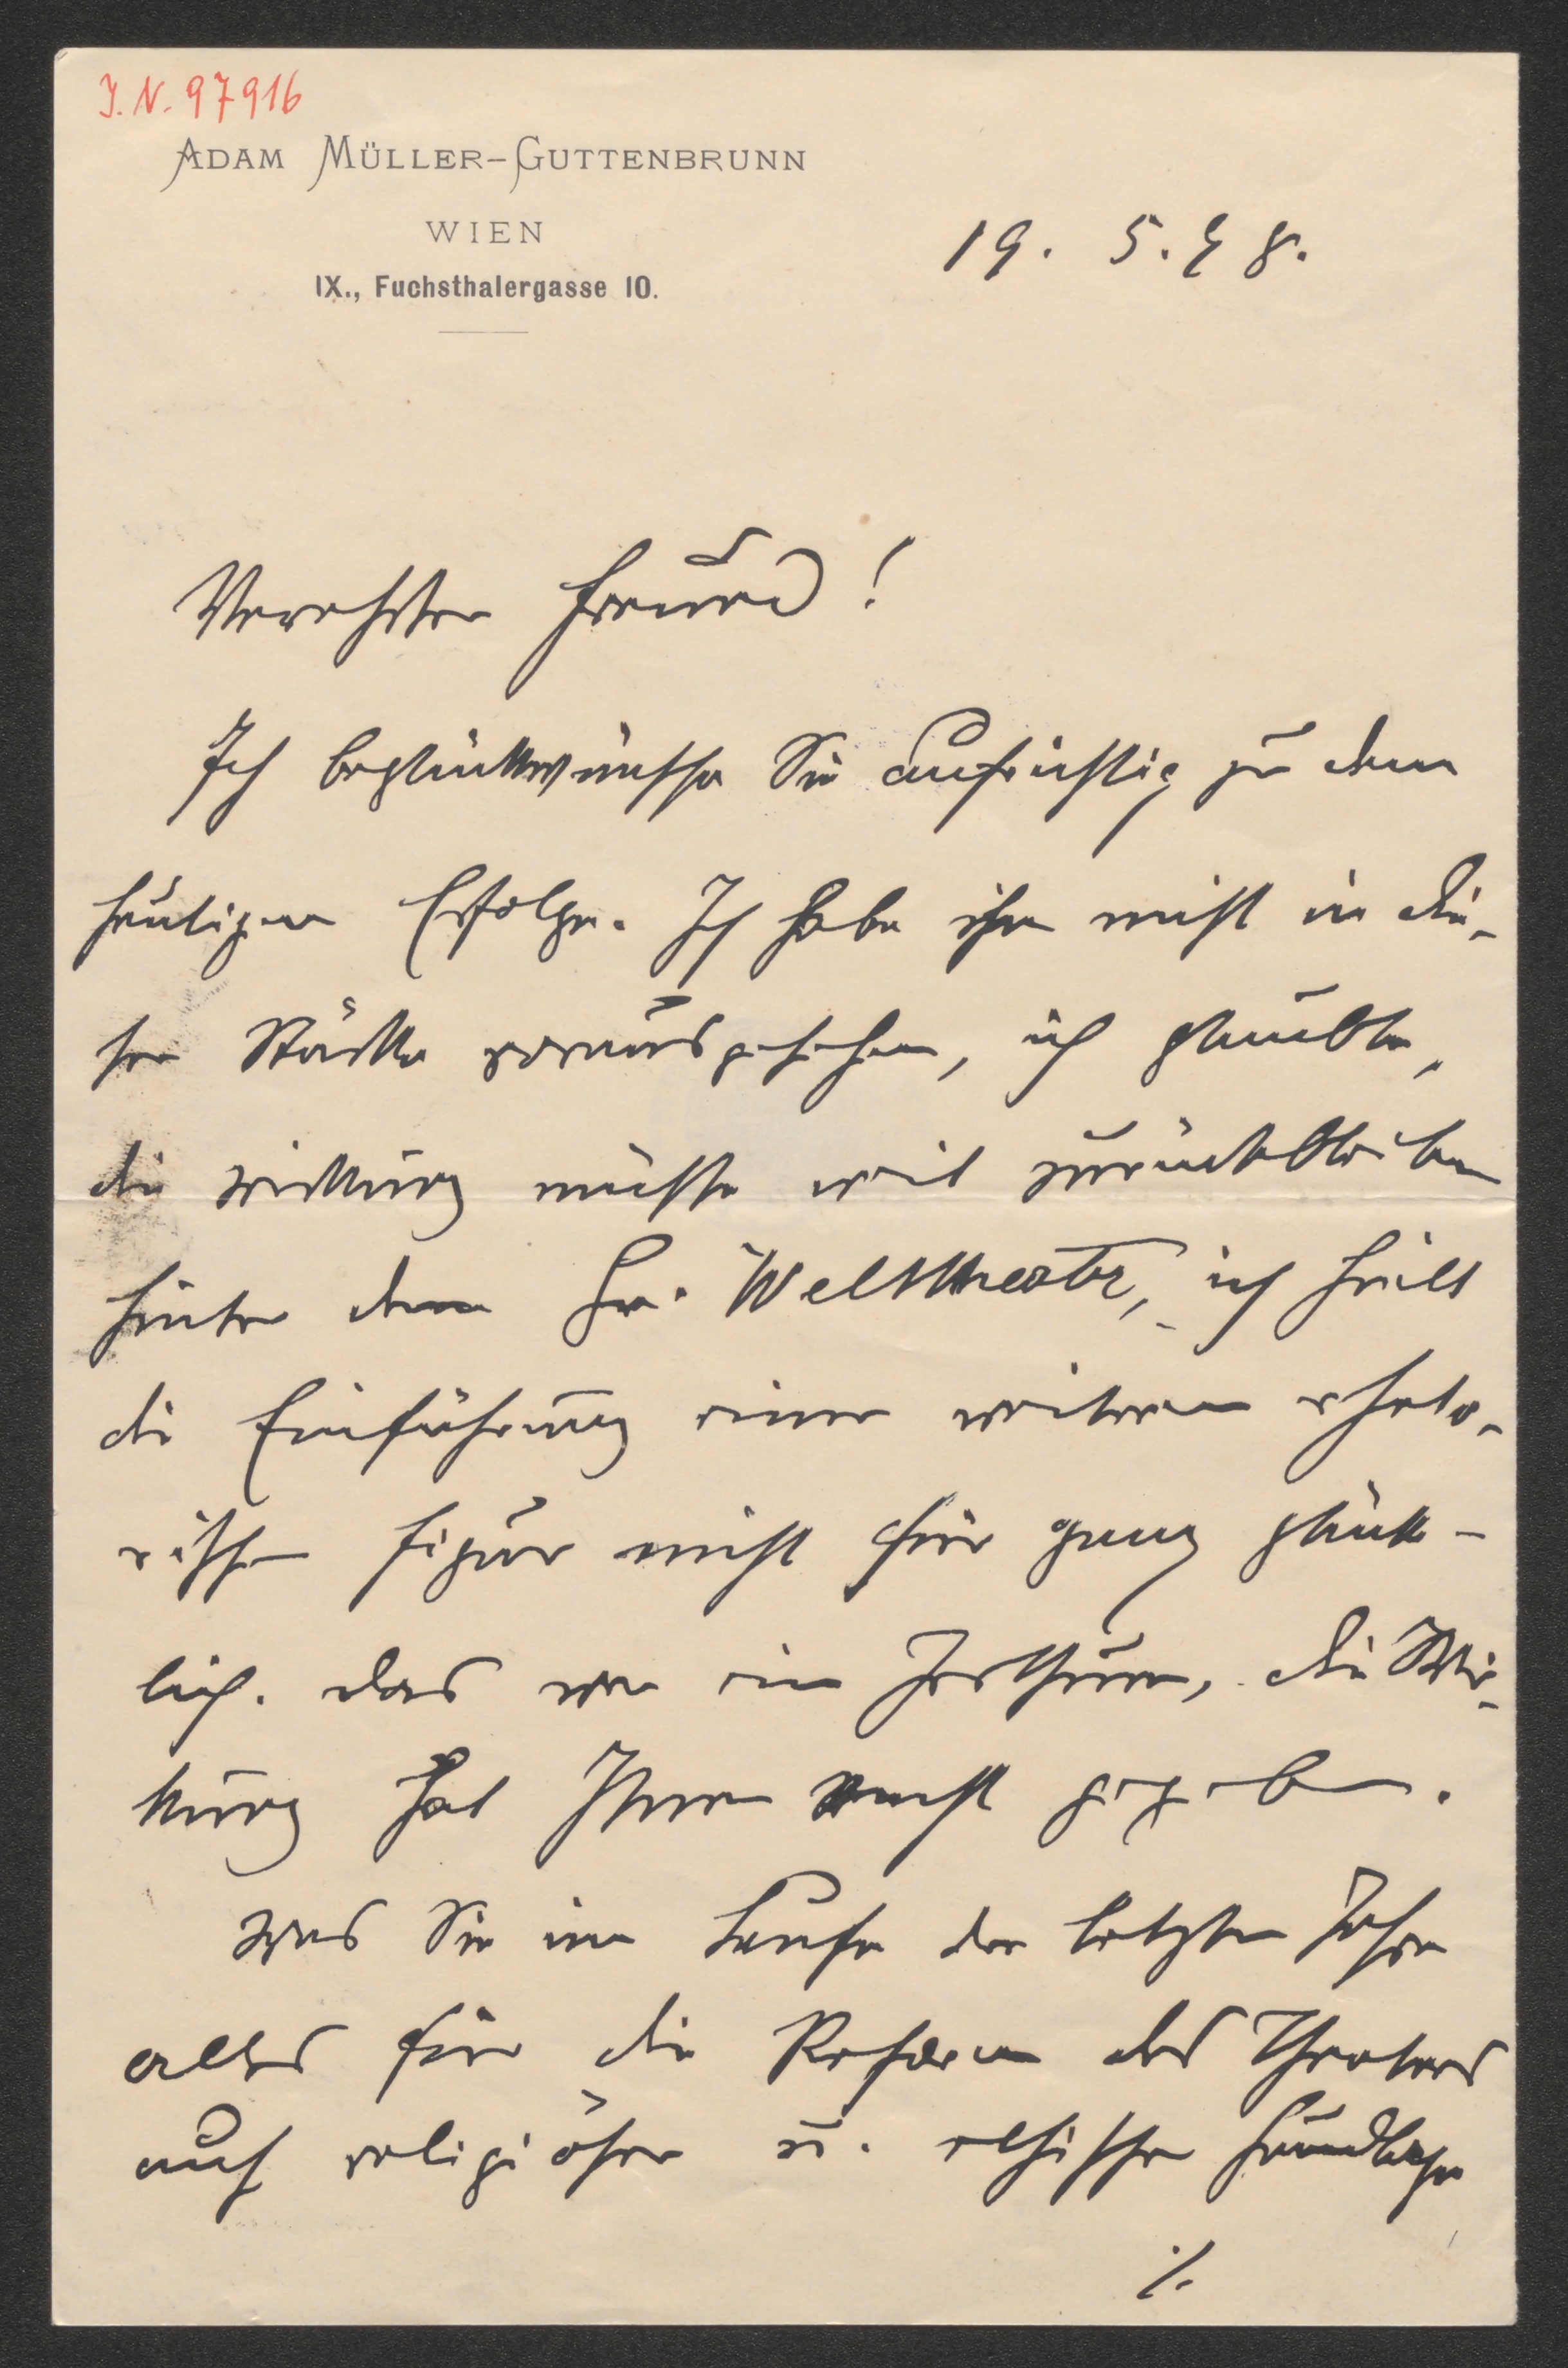 J. N. 97916
ADAM MÜLLER-GUTTENBRUNN
WIEN
IX., Fuchsthalergasse 10.
19. 5. 98.
Verehrter Freund!
Ich beglückwünsche Sie aufrichtig zu dem
heutigen Erfolge. Ich habe ihn nicht in die-
ser Stärke vorausgesehen, ich glaubte,
die Wirkung müsse weit zurückbleiben
hinter dem Gr. Welttheater, ich hielt
die Einführung einer weiteren rheto-
rischen Figur nicht für ganz glück-
lich. Das war ein Irrthum, die Wir-
kung hat Ihnen recht gegeben.
Was Sie im Laufe der letzten Jahre
alles für die Reform des Theaters
auf religiöser u. ethischer Grundlage
./.